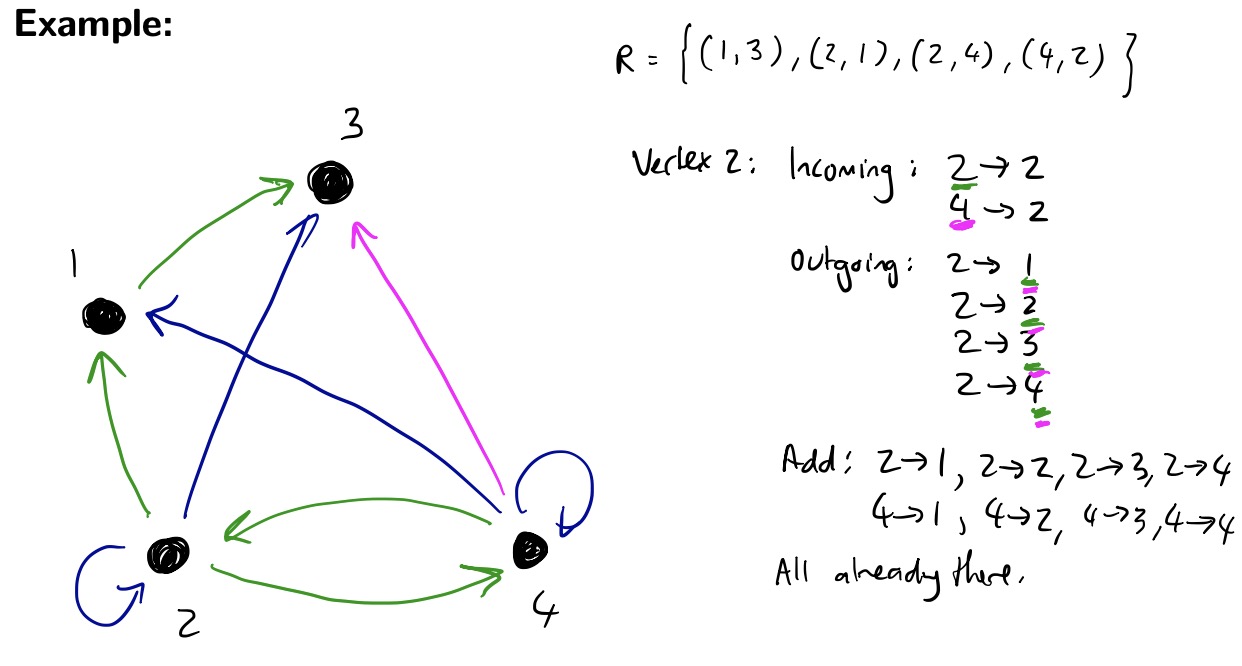 Example:
R = {(1,3), (2,1), (2,4), (4,2)}
3
1
2
4
Vertex 2: Incoming: 2→2
4→2
Outgoing: 2→1
2→2
2→3
2→4
Add: 2→1, 2→2, 2→3, 2→4
4→1, 4→2, 4→3, 4→4
All already there.